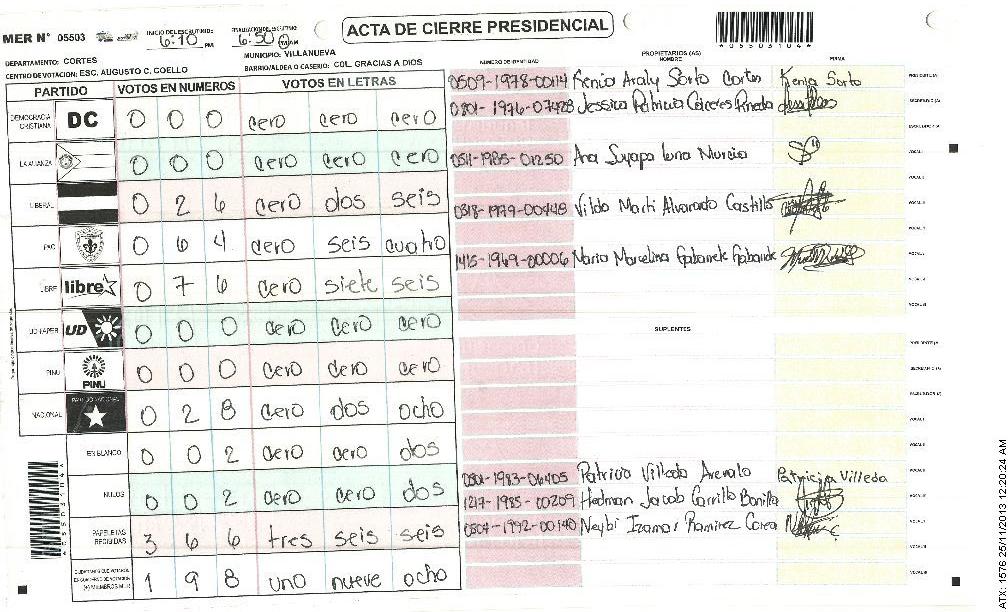 ACTA DE CIERRE PRESIDENCIAL
MER N° 05503
INICIO DEL ESCRUTINIO 6:10 PM
FINALIZACION DEL ESCRUTINIO 6:50
*05503104*
DEPARTAMENTO: CORTES
MUNICIPIO: VILLANUEVA
CENTRO DE VOTACION: ESC. AUGUSTO C. COELLO
BARRIO/ALDEA O CASERIO: COL. GRACIAS A DIOS
PARTIDO VOTOS EN NUMEROS VOTOS EN LETRAS
DEMOCRACIA CRISTIANA DC 0 0 0 cero cero cero
LA ALIANZA 0 0 0 cero cero cero
LIBERAL 0 2 6 cero dos seis
PAC 0 6 4 cero seis cuatro
LIBRE libre 0 7 6 cero siete seis
UD-FAPER UD 0 0 0 cero cero cero
PINU PINU 0 0 0 cero cero cero
NACIONAL PARTIDO NACIONAL 0 2 8 cero dos ocho
EN BLANCO 0 0 2 cero cero dos
NULOS 0 0 2 cero cero dos
PAPELETAS RECIBIDAS 3 6 6 tres seis seis
CIUDADANOS QUE VOTARON 1 9 8 uno nueve ocho
NUMERO DE IDENTIDAD
PROPIETARIOS (AS)
NOMBRE
FIRMA
0509-1978-00114 Kenia Araly Sorto Cortes Kenia Sorto
0801-1976-07428 Jessica Patricia Caceres Pineda
0511-1985-01250 Ana Suyapa Luna Murcia
0318-1979-00448 Vildo Marti Alvarado Castillo
1415-1969-00006 Maria Marcelina
SUPLENTES
0501-1983-06405 Patricia Villeda Arevalo Patricia Villeda
1217-1985-00209 Hedman Jacob Carrillo Bonilla
0504-1992-00140 Neybi Ramirez
*05503104*
ATX: 1576 25/11/2013 12:20:24 AM